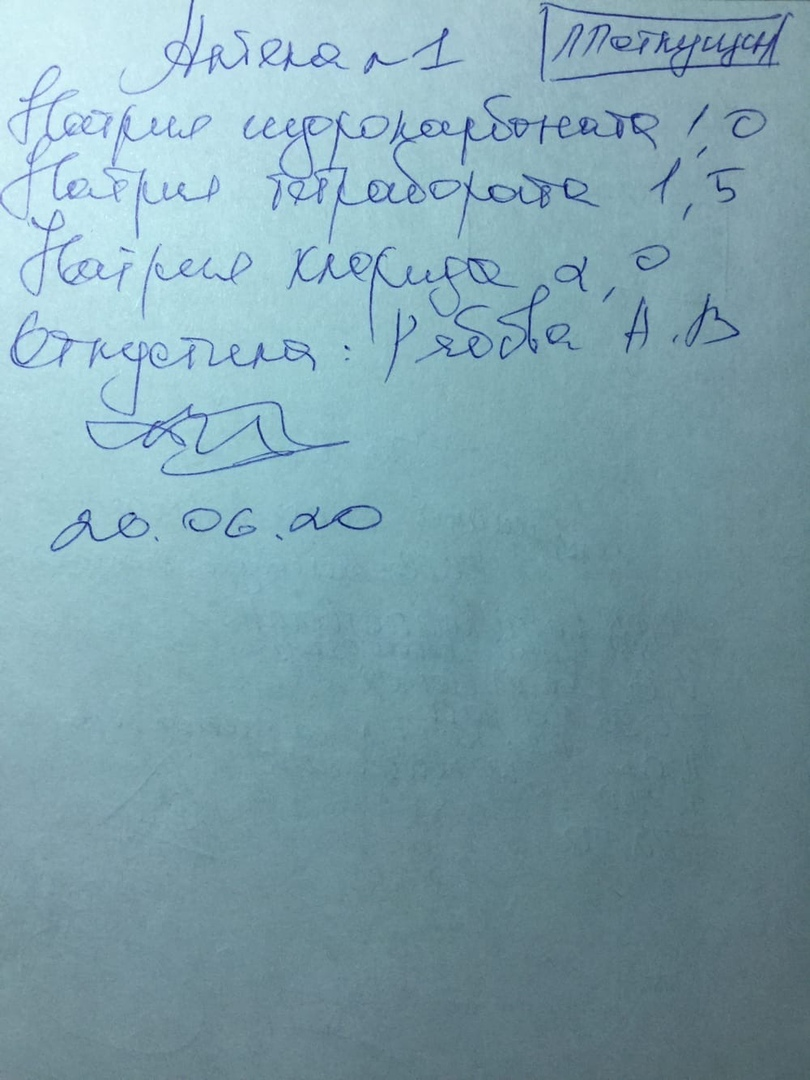 Аптека №1
ППотпущен
Натрия гидрокарбоната 1,0
Натрия тетрабората 1,5
Натрия хлорида 2,0
Отпустила: Рябова А.В
20.06.20